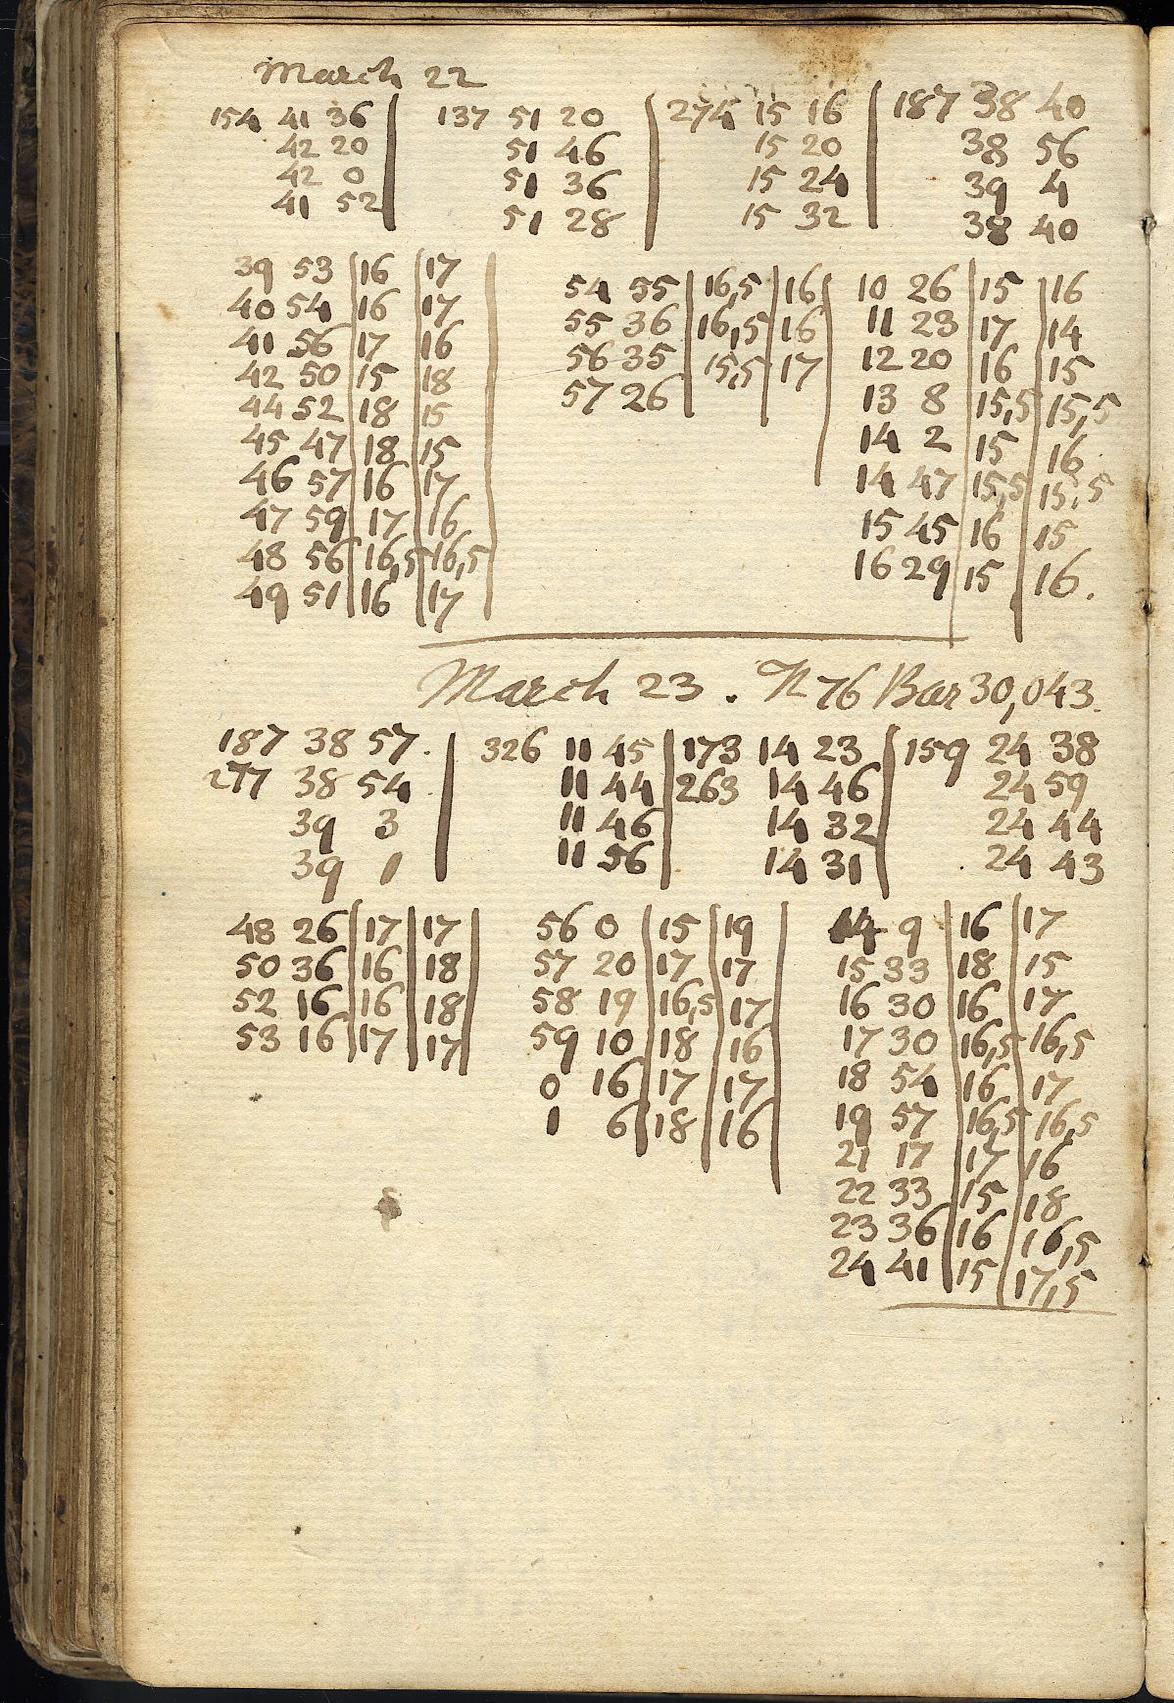 March 22
154 41 36 | 137 51 20 | 274 15 16 | 187 38 40
42 20 | 51 46 | 15 20 | 38 56
42 0 | 51 36 | 15 24 | 39 4
41 52 | 51 28 | 15 32 | 38 40
39 53 | 16 | 17 | 54 55 | 16,5 | 16 | 10 26 | 15 | 16
40 54 | 16 | 17 | 55 36 | 16,5 | 16 | 11 23 | 17 | 14
41 56 | 17 | 16 | 56 35 | 15,5 | 17 | 12 20 | 16 | 15
42 50 | 15 | 18 | 57 26 | 13 8 | 15,5 | 15,5
44 52 | 18 | 15 | 14 2 | 15 | 16
45 47 | 18 | 15 | 14 47 | 15,5 | 15,5
46 57 | 16 | 17 | 15 45 | 16 | 15
47 59 | 17 | 16 | 16 29 | 15 | 16.
48 56 | 16,5 | 16,5
49 51 | 16 | 17
March 23 . N 76 Bar 30,043.
187 38 57. | 326 11 45 | 173 14 23 | 159 24 38
277 38 54 | 11 44 | 263 14 46 | 24 59
39 3 | 11 46 | 14 32 | 24 44
39 1 | 11 56 | 14 31 | 24 43
48 26 | 17 | 17 | 56 0 | 15 | 19 | 14 9 | 16 | 17
50 36 | 16 | 18 | 57 20 | 17 | 17 | 15 33 | 18 | 15
52 16 | 16 | 18 | 58 19 | 16,5 | 17 | 16 30 | 16 | 17
53 16 | 17 | 17 | 59 10 | 18 | 16 | 17 30 | 16,5 | 16,5
0 16 | 17 | 17 | 18 54 | 16 | 17
1 6 | 18 | 16 | 19 57 | 16,5 | 16,5
21 17 | 17 | 16
22 33 | 15 | 18
23 36 | 16 | 16,5
24 41 | 15 | 17,5